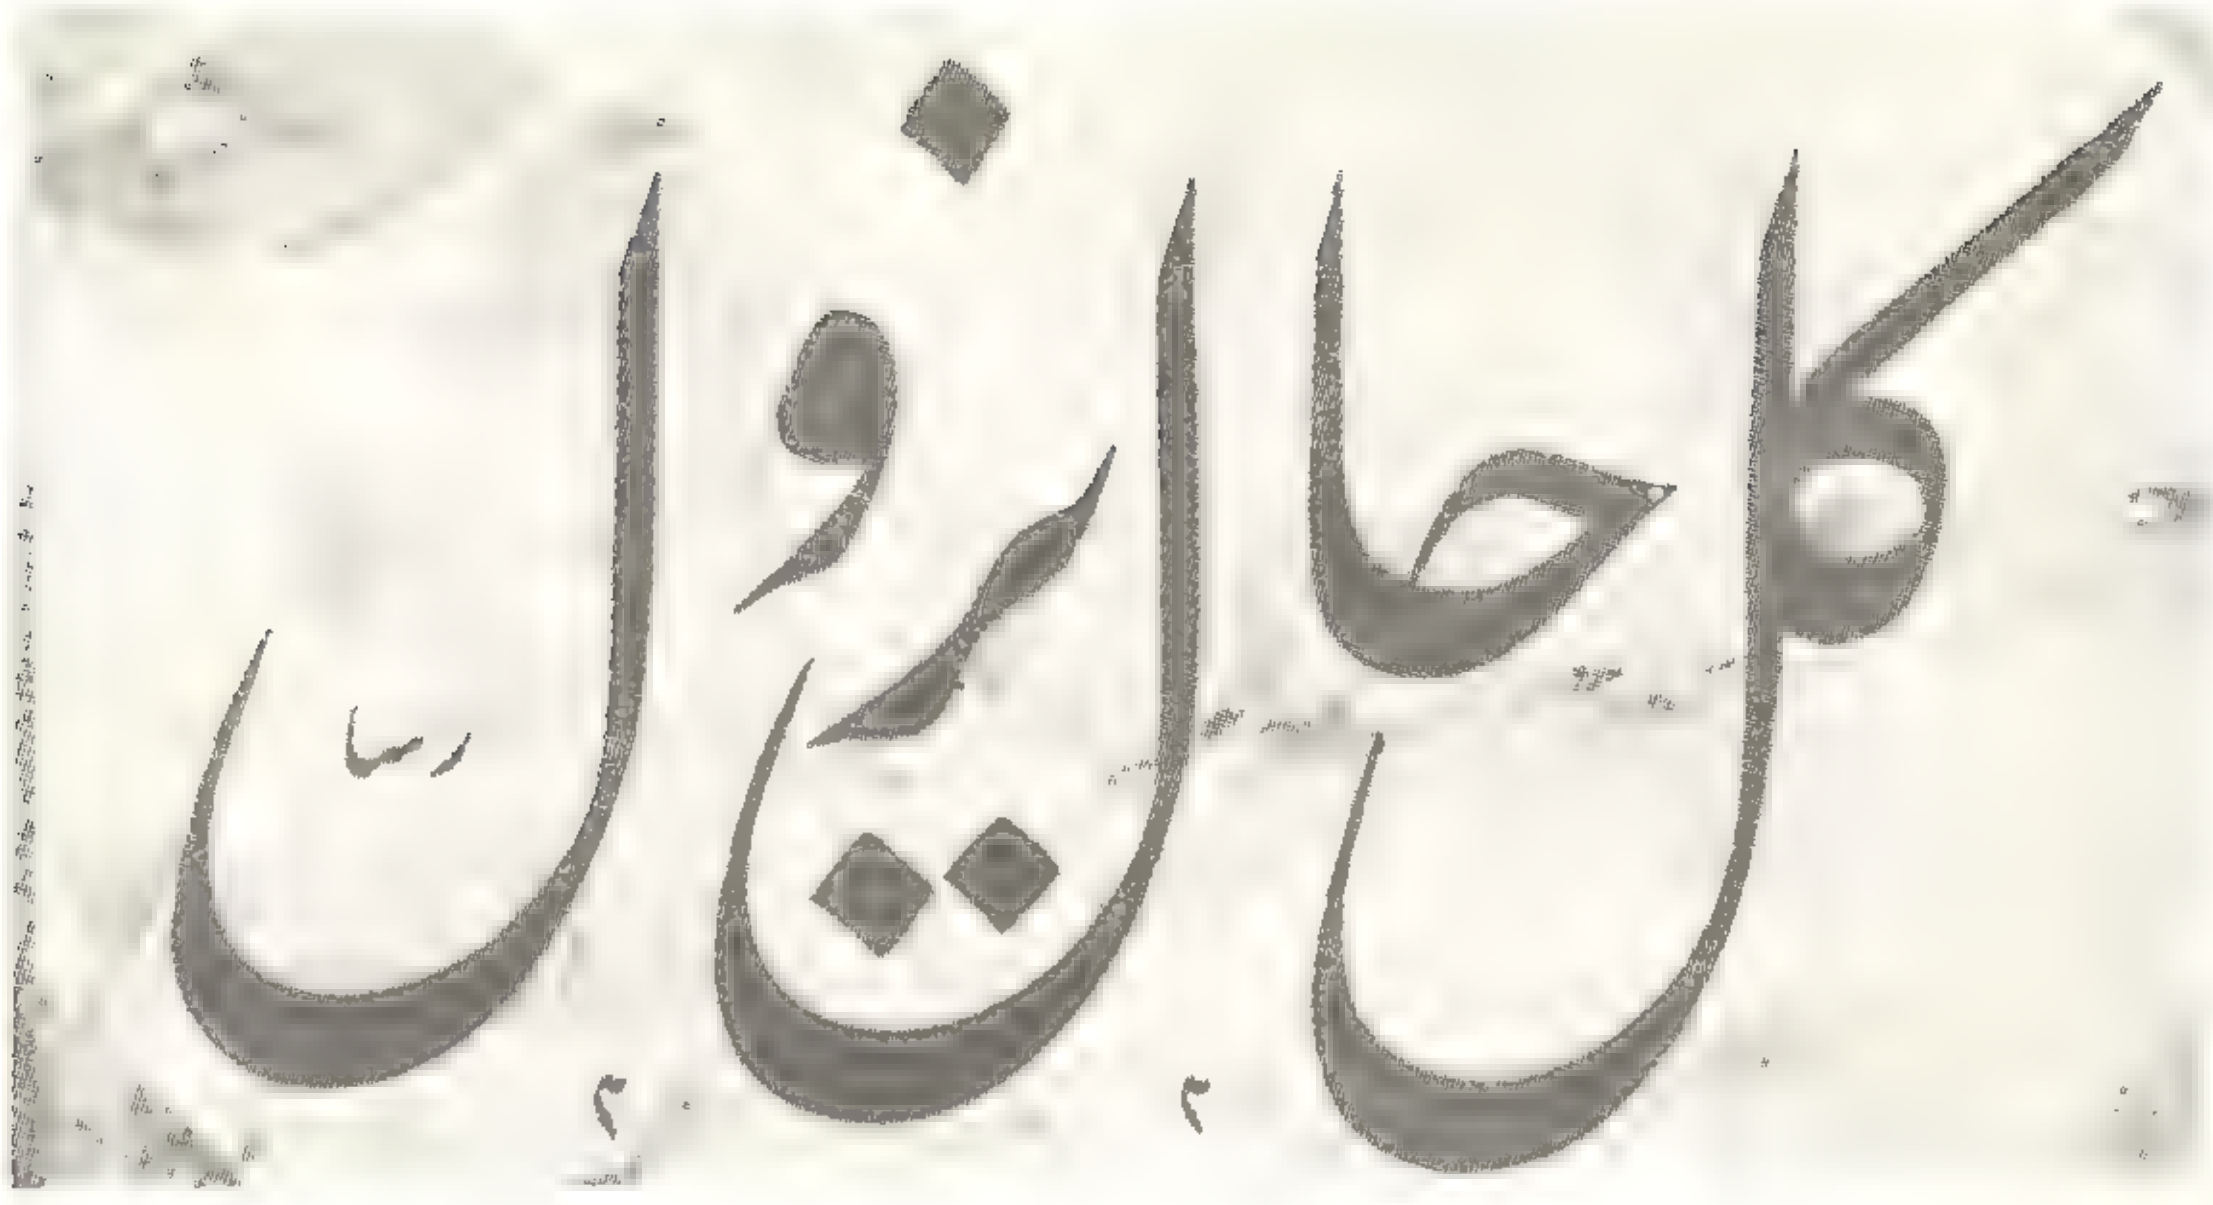 كل حال يزول